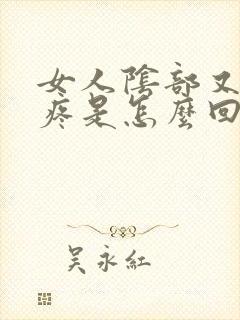 女人陰部又
疼是怎麼回
吴永紅